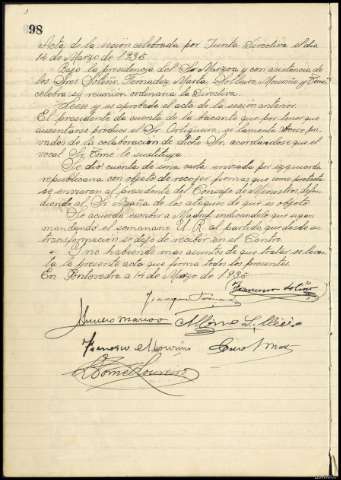 98
Acta de la sesion celebrada por Junta Directiva el dia
14 de Marzo de 1935
Bajo la presidencia del Sr. y con asistencia de
los Sres Poteño, Fernandez Marta, Mouriño y Tomé
celebra su reunion ordinaria la Directiva.
Leese y es aprobada el acta de la sesion anterior.
El presidente da cuenta de la vacante que por tener que
ausentarse produce el Sr. Ortigueira, se lamenta verse pri-
vados de la colaboracion de dicho Sr. acordandose que el
vocal Sr. Tome lo sustituya.
Se dio cuenta de una carta enviada por izquierda
republicana con objeto de recojer firmas que como protesta
se enviaron al presidente del Consejo de Ministros, defen
diendo al Sr Azaña de los ataques de que es objeto
Se acuerda escribir a Madrid indicandole que sigan
mandando el semanario al partido que desde su
transformacion se dejo de recibir en el Centro.
Y no habiendo mas asuntos de que tratar se levan
ta la presente acta que firman todos los presentes.
En Pontevedra a 14 de Marzo de 1935
Joaquin
Francisco Mouriño